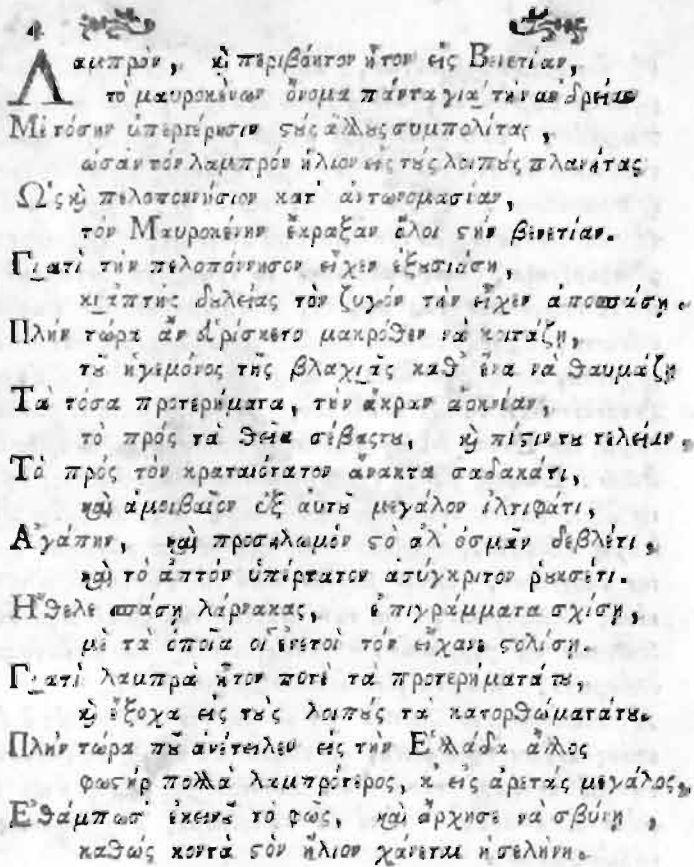 4
Λαμπρὸν, καὶ περιβόητον ἦτον εἰς Βενετίαν,
τὸ μαυροκένων ὄνομα πάντα γιὰ τὴν ἀνδρείαν
Μὲ τόσην ὑπερτέρησιν στοὺς ἄλλους συμπολίτας,
ὡσὰν τὸν λαμπρὸν ἥλιον εἰς τοὺς λοιποὺς πλανήτας
Ὡς καὶ πελοποννήσιον κατ' ἀντωνομασίαν,
τὸν Μαυροκένην ἔκραξαν ὅλοι στὴν βενετίαν.
Γιατὶ τὴν πελοπόννησον εἶχεν ἐξουσιάση,
κιἀπτῆς δουλείας τὸν ζυγὸν τὴν εἶχεν ἀποσπάση.
Πλὴν τώρα ἂν εὑρίσκετο μακρόθεν νὰ κοιτάζῃ,
τοῦ ἡγεμόνος τῆς βλαχιᾶς καθ' ἕνα νὰ θαυμάζῃ
Τὰ τόσα προτερήματα, τὴν ἄκραν ἀοκνίαν,
τὸ πρὸς τὰ θεῖα σέβας του, καὶ πίστιν του τελείαν.
Τὸ πρὸς τὸν κραταιότατον ἄνακτα σαδακάτι,
καὶ ἀμοιβαῖον ἐξ αὐτοῦ μεγάλον ἰλτιφάτι,
Ἀγάπην, καὶ προσηλωμὸν στὸ ἀλ' ὀσμᾶν δεβλέτι,
καὶ τὸ ἀπτὸν ὑπέρτατον ἀσύγκριτον ῥουσέτι.
Ἤθελε σπάση λάρνακας, ἐπιγράμματα σχίση,
μὲ τὰ ὁποῖα οἱ ἐνετοὶ τὸν εἴχανε στολίση.
Γιατὶ λαμπρὰ ἦτον ποτὲ τὰ προτερήματάτου,
καὶ ἔξοχα εἰς τοὺς λοιποὺς τὰ κατορθώματάτου.
Πλὴν τώρα ποῦ ἀνέτειλεν εἰς τὴν Ἑλλάδα ἄλλος
φωστὴρ πολλὰ λαμπρότερος, κ' εἰς ἀρετὰς μεγάλος,
Ἐθάμπωσ' ἐκεινοῦ τὸ φῶς, καὶ ἄρχησε νὰ σβύνῃ,
καθὼς κοντὰ στὸν ἥλιον χάνεται ἡ σελήνη.